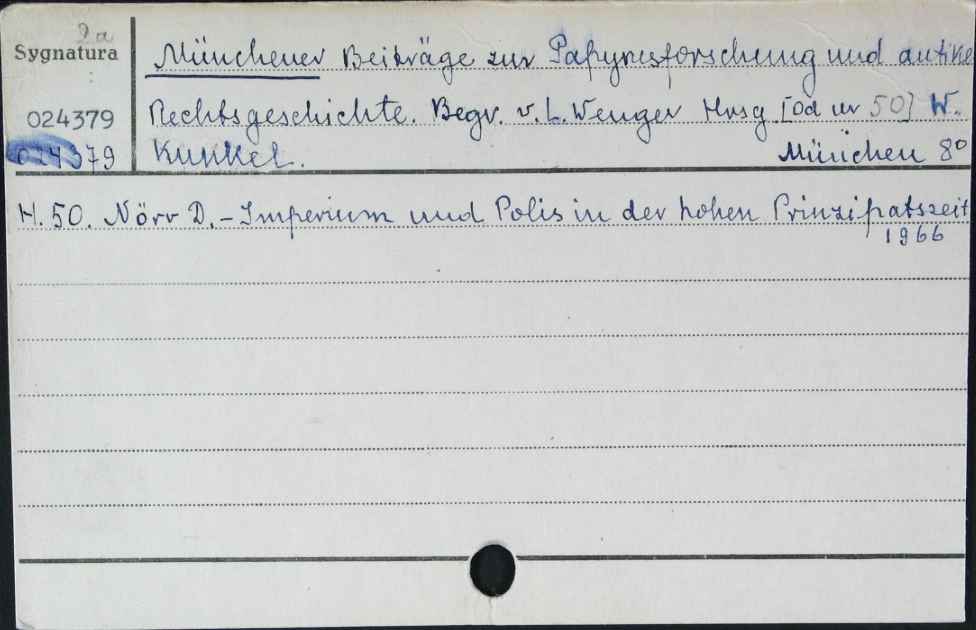 2a
Sygnatura
Münchener Beiträge zur Papyrusforschung und antike
024379
Rechtsgeschichte. Begr. v. L. Wenger Hrsg [Od nr 50] W.
024379
Kunkel. München 8°
H. 50. Nörr D. - Imperium und Polis in der hohen Prinzipatszeit
1966